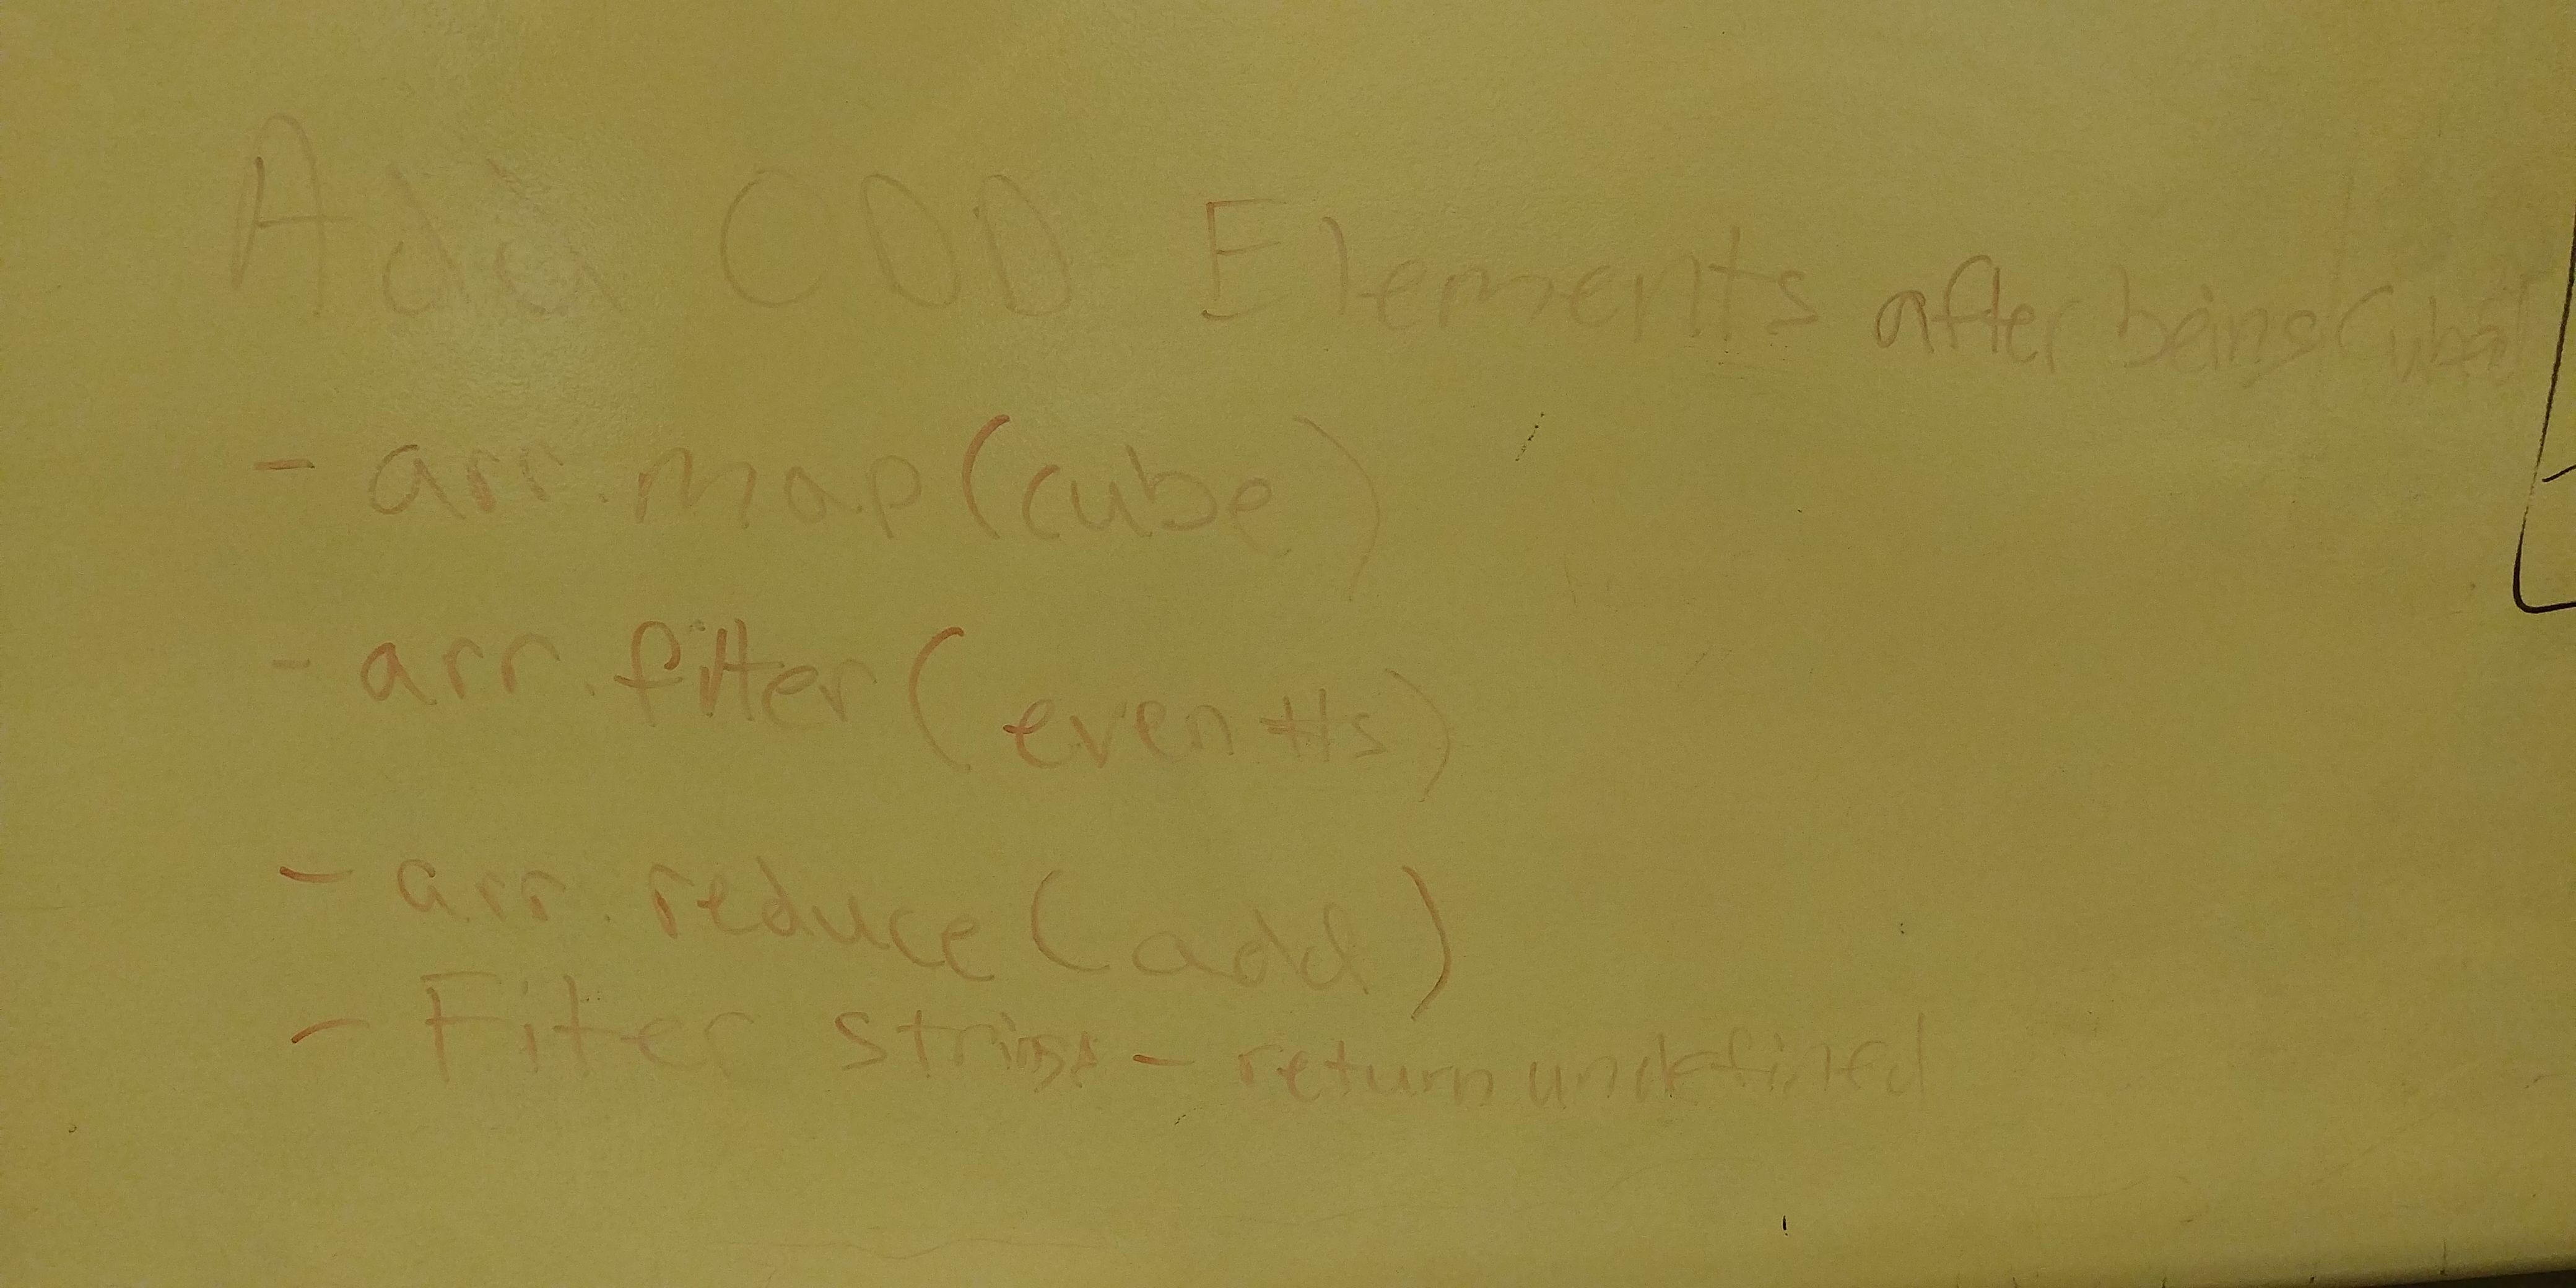 Add ODD Elements after being Cubed
- arr.map(cube)
- arr.filter(even #s)
- arr.reduce(add)
- Filter strings - return undefined